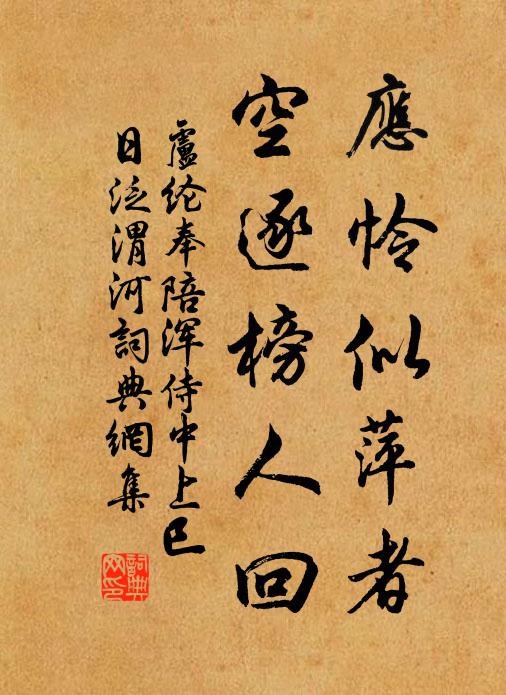 應怜似萍者
空逐榜人回
盧纶奉陪渾侍中上巳
日泛渭河詞典網集
詞典
网印